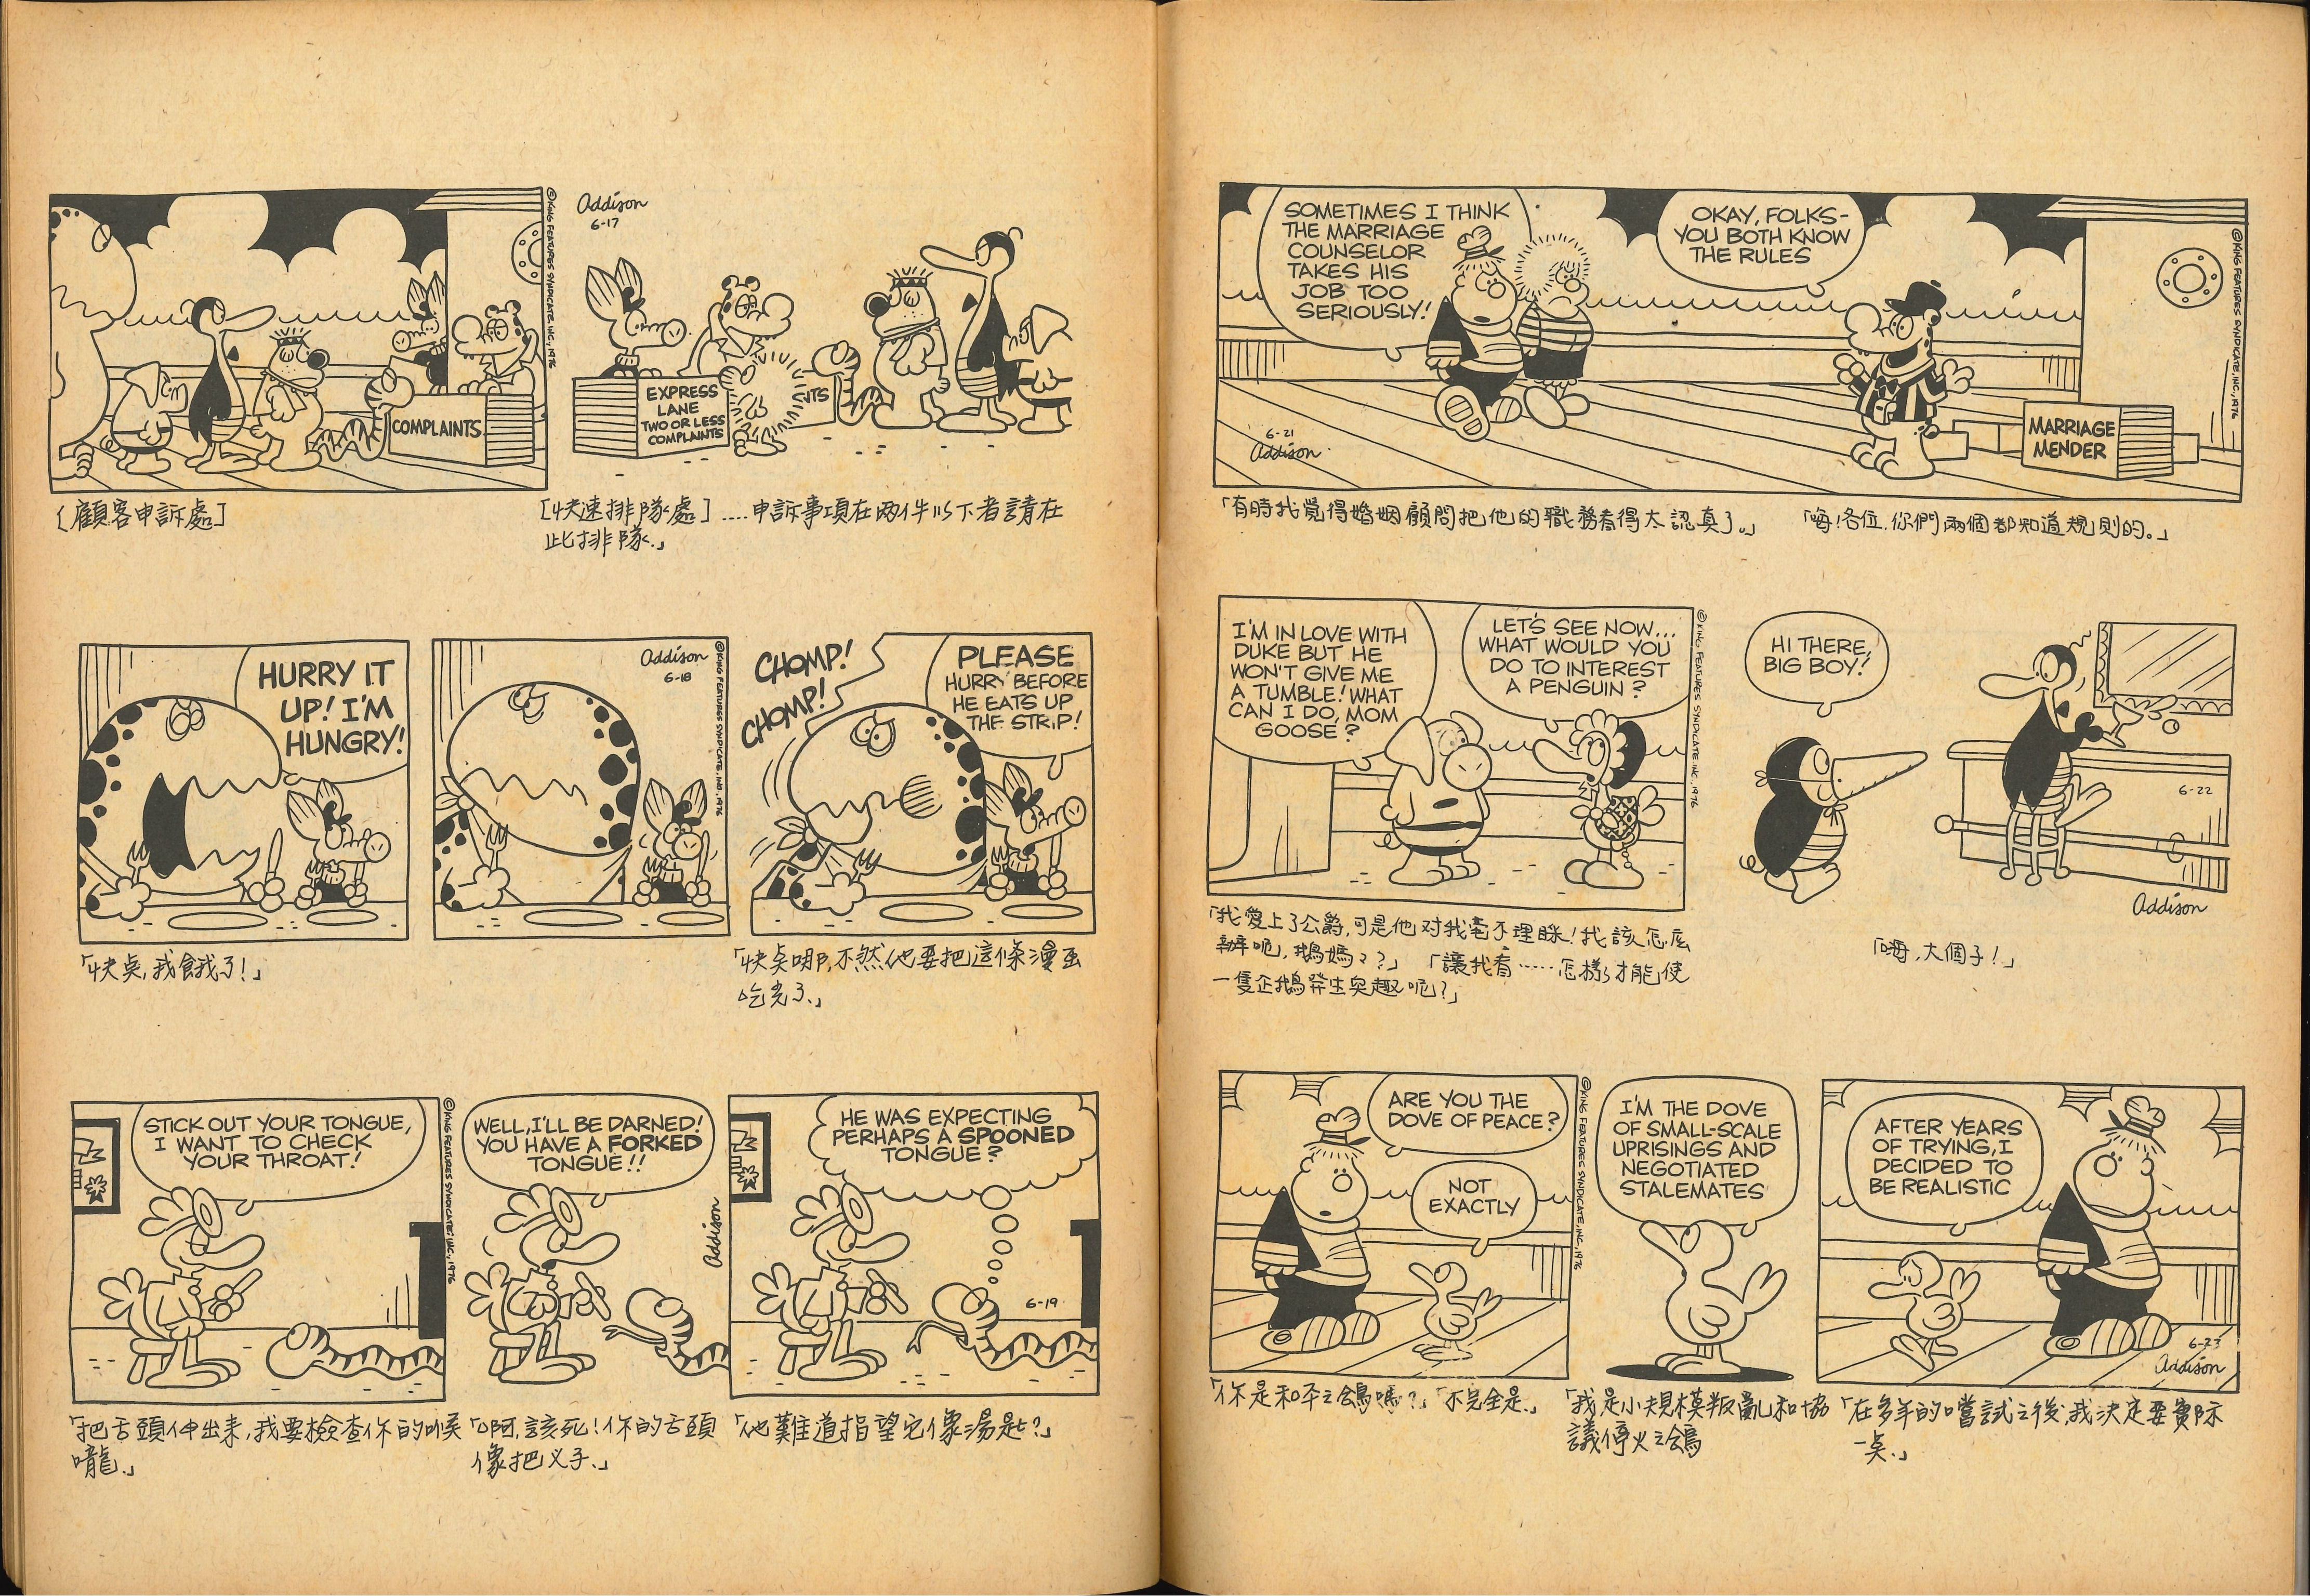 ©KING FEATURES SYNDICATE, INC., 1976
Addison
6-17
COMPLAINTS
EXPRESS
LANE
TWO OR LESS
COMPLAINTS
NTS
〔顧客申訴處〕
〔快速排隊處〕....申訴事項在两件以下者請在
此排隊.」
HURRY IT
UP! I'M
HUNGRY!
Addison
6-18
©KING FEATURES SYNDICATE, INC., 1976
CHOMP!
CHOMP!
PLEASE
HURRY BEFORE
HE EATS UP
THE STRIP!
「快奌,我餓了!」
「快奌哪,不然他要把這條漫画
吃光了.」
STICK OUT YOUR TONGUE,
I WANT TO CHECK
YOUR THROAT!
©KING FEATURES SYNDICATE, INC., 1976
WELL, I'LL BE DARNED!
YOU HAVE A FORKED
TONGUE!!
Addison
HE WAS EXPECTING
PERHAPS A SPOONED
TONGUE?
6-19
「把舌頭伸出来,我要檢查你的喉
嚨.」
「啊,該死!你的舌頭
像把叉子.」
「他難道指望它像湯匙?」
SOMETIMES I THINK
THE MARRIAGE
COUNSELOR
TAKES HIS
JOB TOO
SERIOUSLY!
OKAY, FOLKS-
YOU BOTH KNOW
THE RULES
©KING FEATURES SYNDICATE, INC., 1976
MARRIAGE
MENDER
6-21
Addison
「有時我覺得婚姻顧問把他的職務看得太認真了。」
「嗨!各位.你們兩個都知道規則的。」
I'M IN LOVE WITH
DUKE BUT HE
WON'T GIVE ME
A TUMBLE! WHAT
CAN I DO, MOM
GOOSE?
LET'S SEE NOW...
WHAT WOULD YOU
DO TO INTEREST
A PENGUIN?
©KING FEATURES SYNDICATE INC., 1976
HI THERE,
BIG BOY!
6-22
Addison
「我愛上了公爵,可是他对我毫不理睬!我該怎麽
辦呢,鵝媽?」「讓我看……怎樣才能使
一隻企鵝発生興趣呢?」
「嗨,大個子!」
ARE YOU THE
DOVE OF PEACE?
NOT
EXACTLY
©KING FEATURES SYNDICATE, INC., 1976
I'M THE DOVE
OF SMALL-SCALE
UPRISINGS AND
NEGOTIATED
STALEMATES
AFTER YEARS
OF TRYING, I
DECIDED TO
BE REALISTIC
6-23
Addison
「你是和平之鴿嗎?」「不完全是.」
「我是小規模叛亂和協
議停火之鴿
「在多年的嚐試之後,我決定要實际
一奌.」